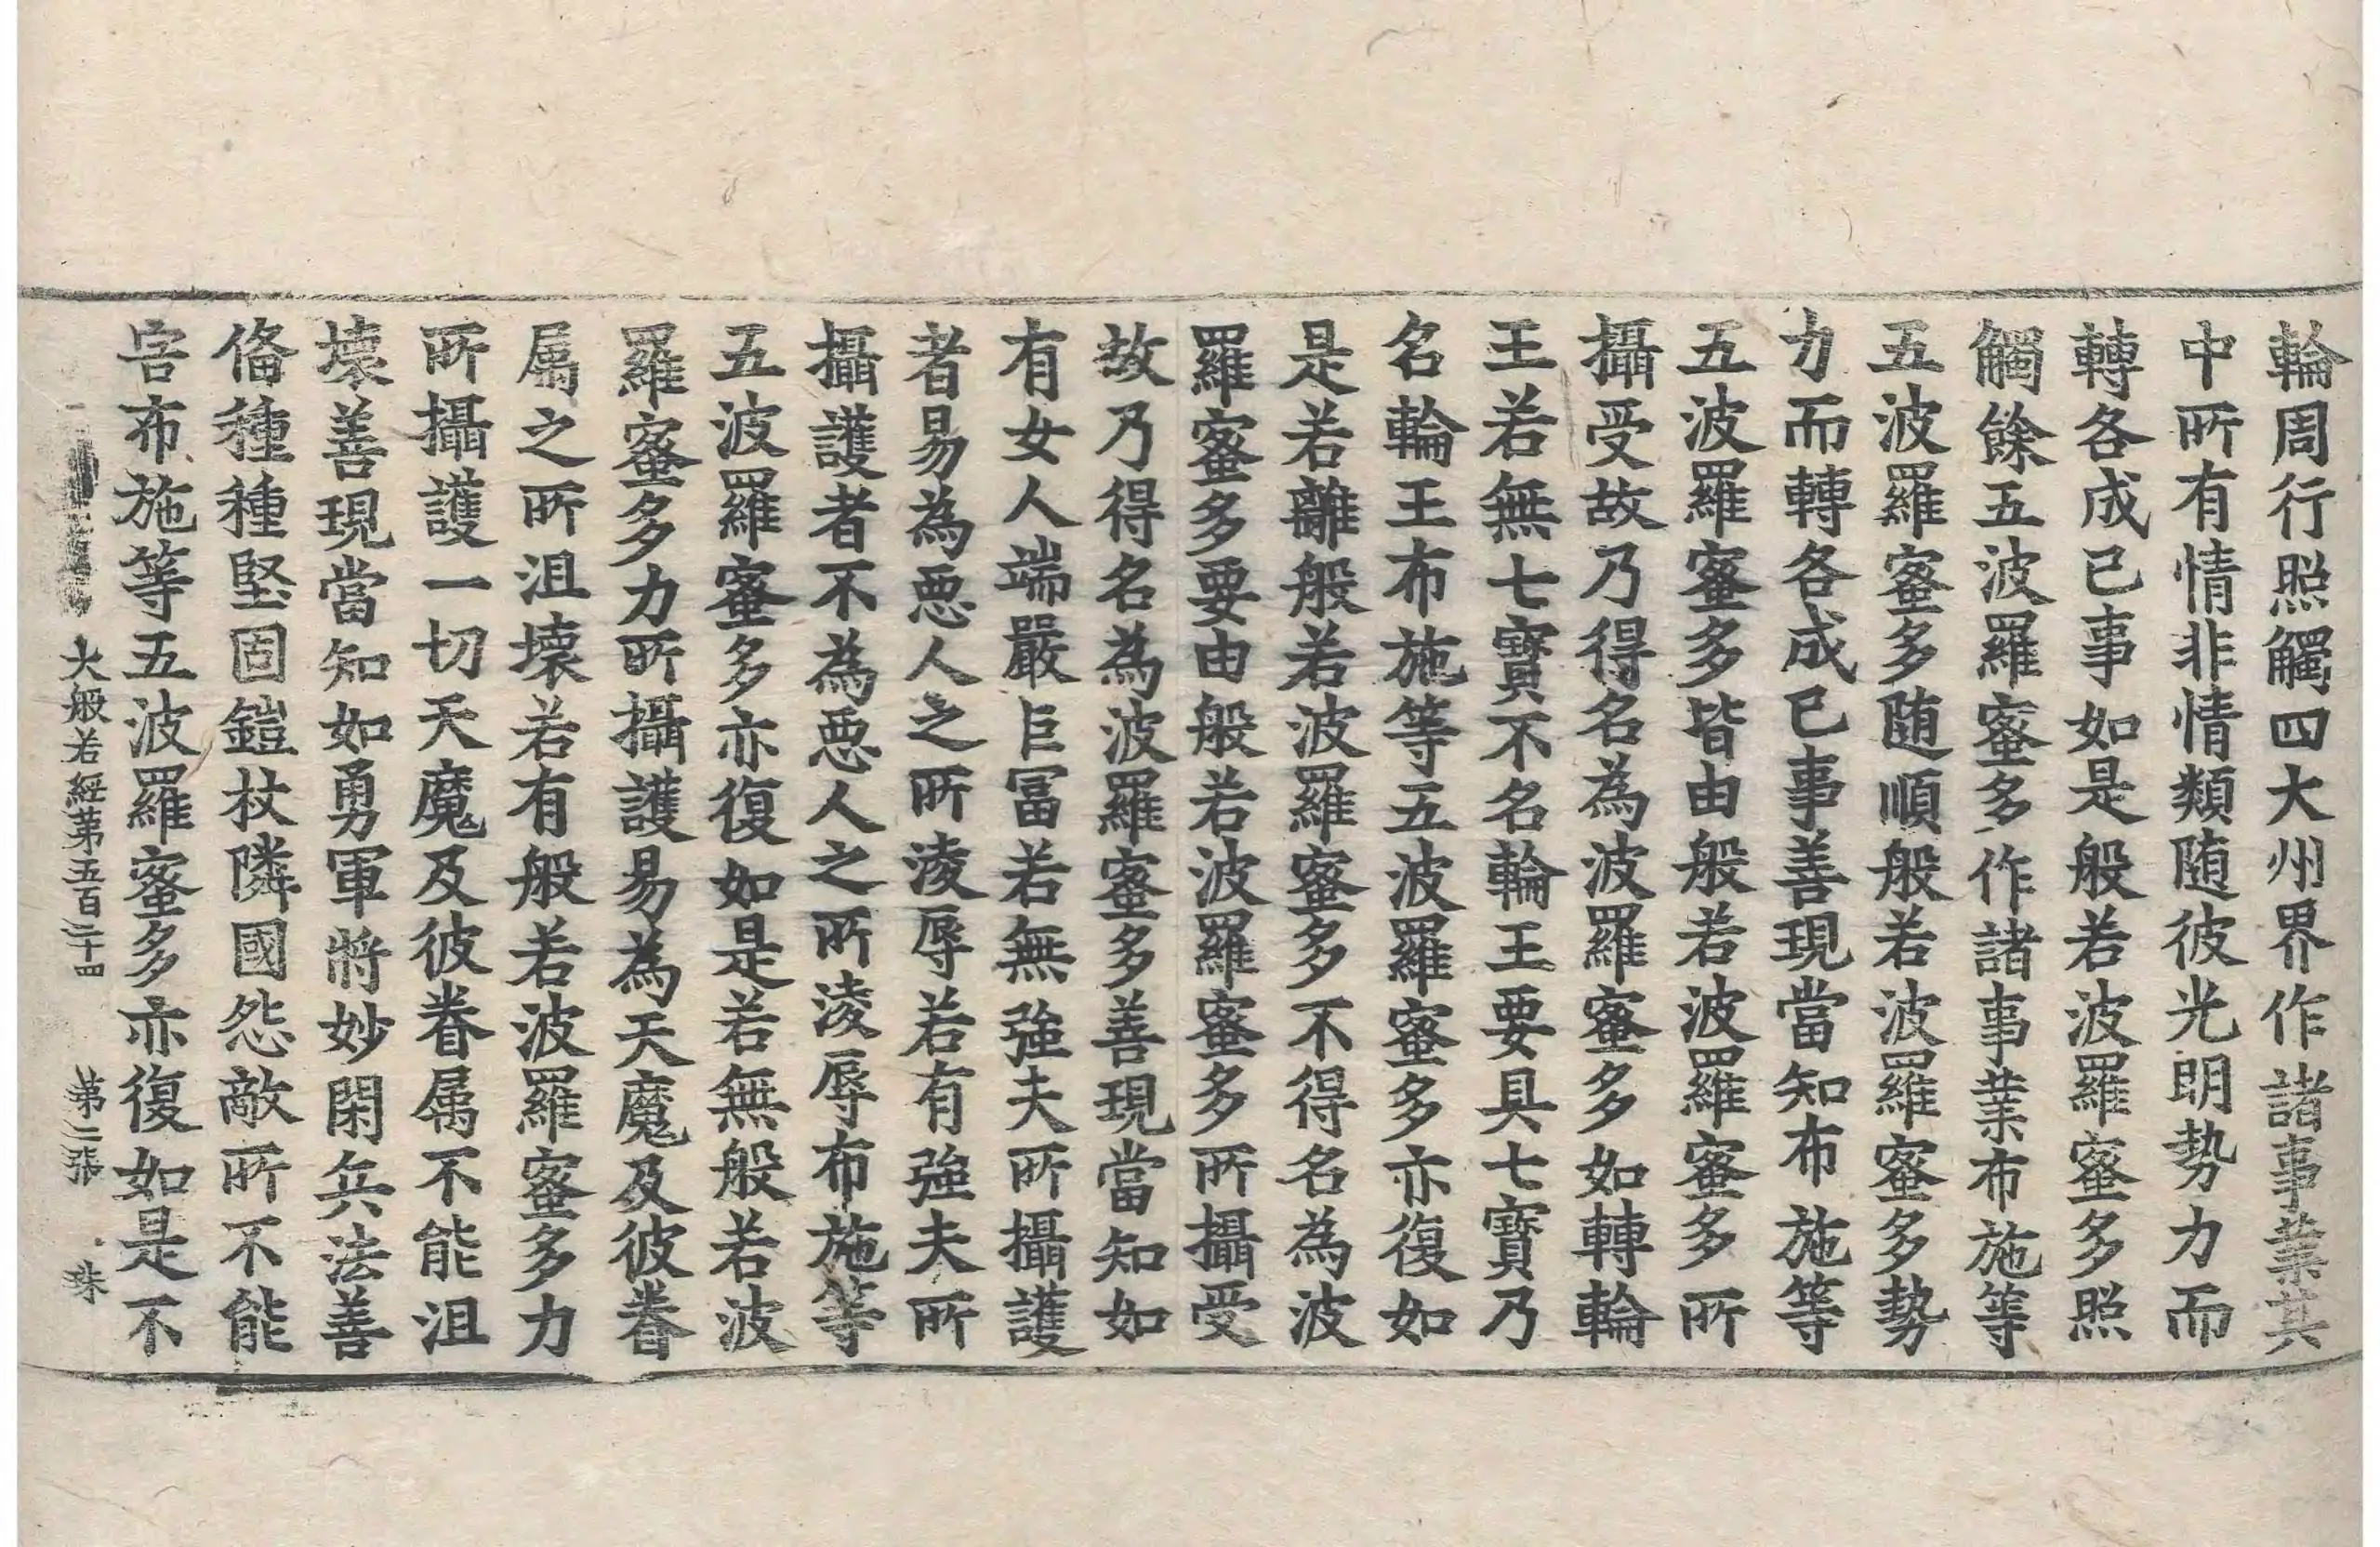 輪周行照觸四大州界作諸事業其
中所有情非情類随彼光明勢力而
轉各成已事如是般若波羅蜜多照
觸餘五波羅蜜多作諸事業布施等
五波羅蜜多随順般若波羅蜜多勢
力而轉各成已事善現當知布施等
五波羅蜜多皆由般若波羅蜜多所
攝受故乃得名為波羅蜜多如轉輪
王若無七寶不名輪王要具七寶乃
名輪王布施等五波羅蜜多亦復如
是若離般若波羅蜜多不得名為波
羅蜜多要由般若波羅蜜多所攝受
故乃得名為波羅蜜多善現當知如
有女人端嚴巨冨若無強夫所攝護
者易為惡人之所淩辱若有強夫所
攝護者不為惡人之所淩辱布施等
五波羅蜜多亦復如是若無般若波
羅蜜多力所攝護易為天魔及彼眷
属之所沮壞若有般若波羅蜜多力
所攝護一切天魔及彼眷属不能沮
壞善現當知如勇軍將妙閑兵法善
俻種種堅固鎧杖隣國怨敵所不能
害布施等五波羅蜜多亦復如是不
大般若經第五百二十四 第二張 珠